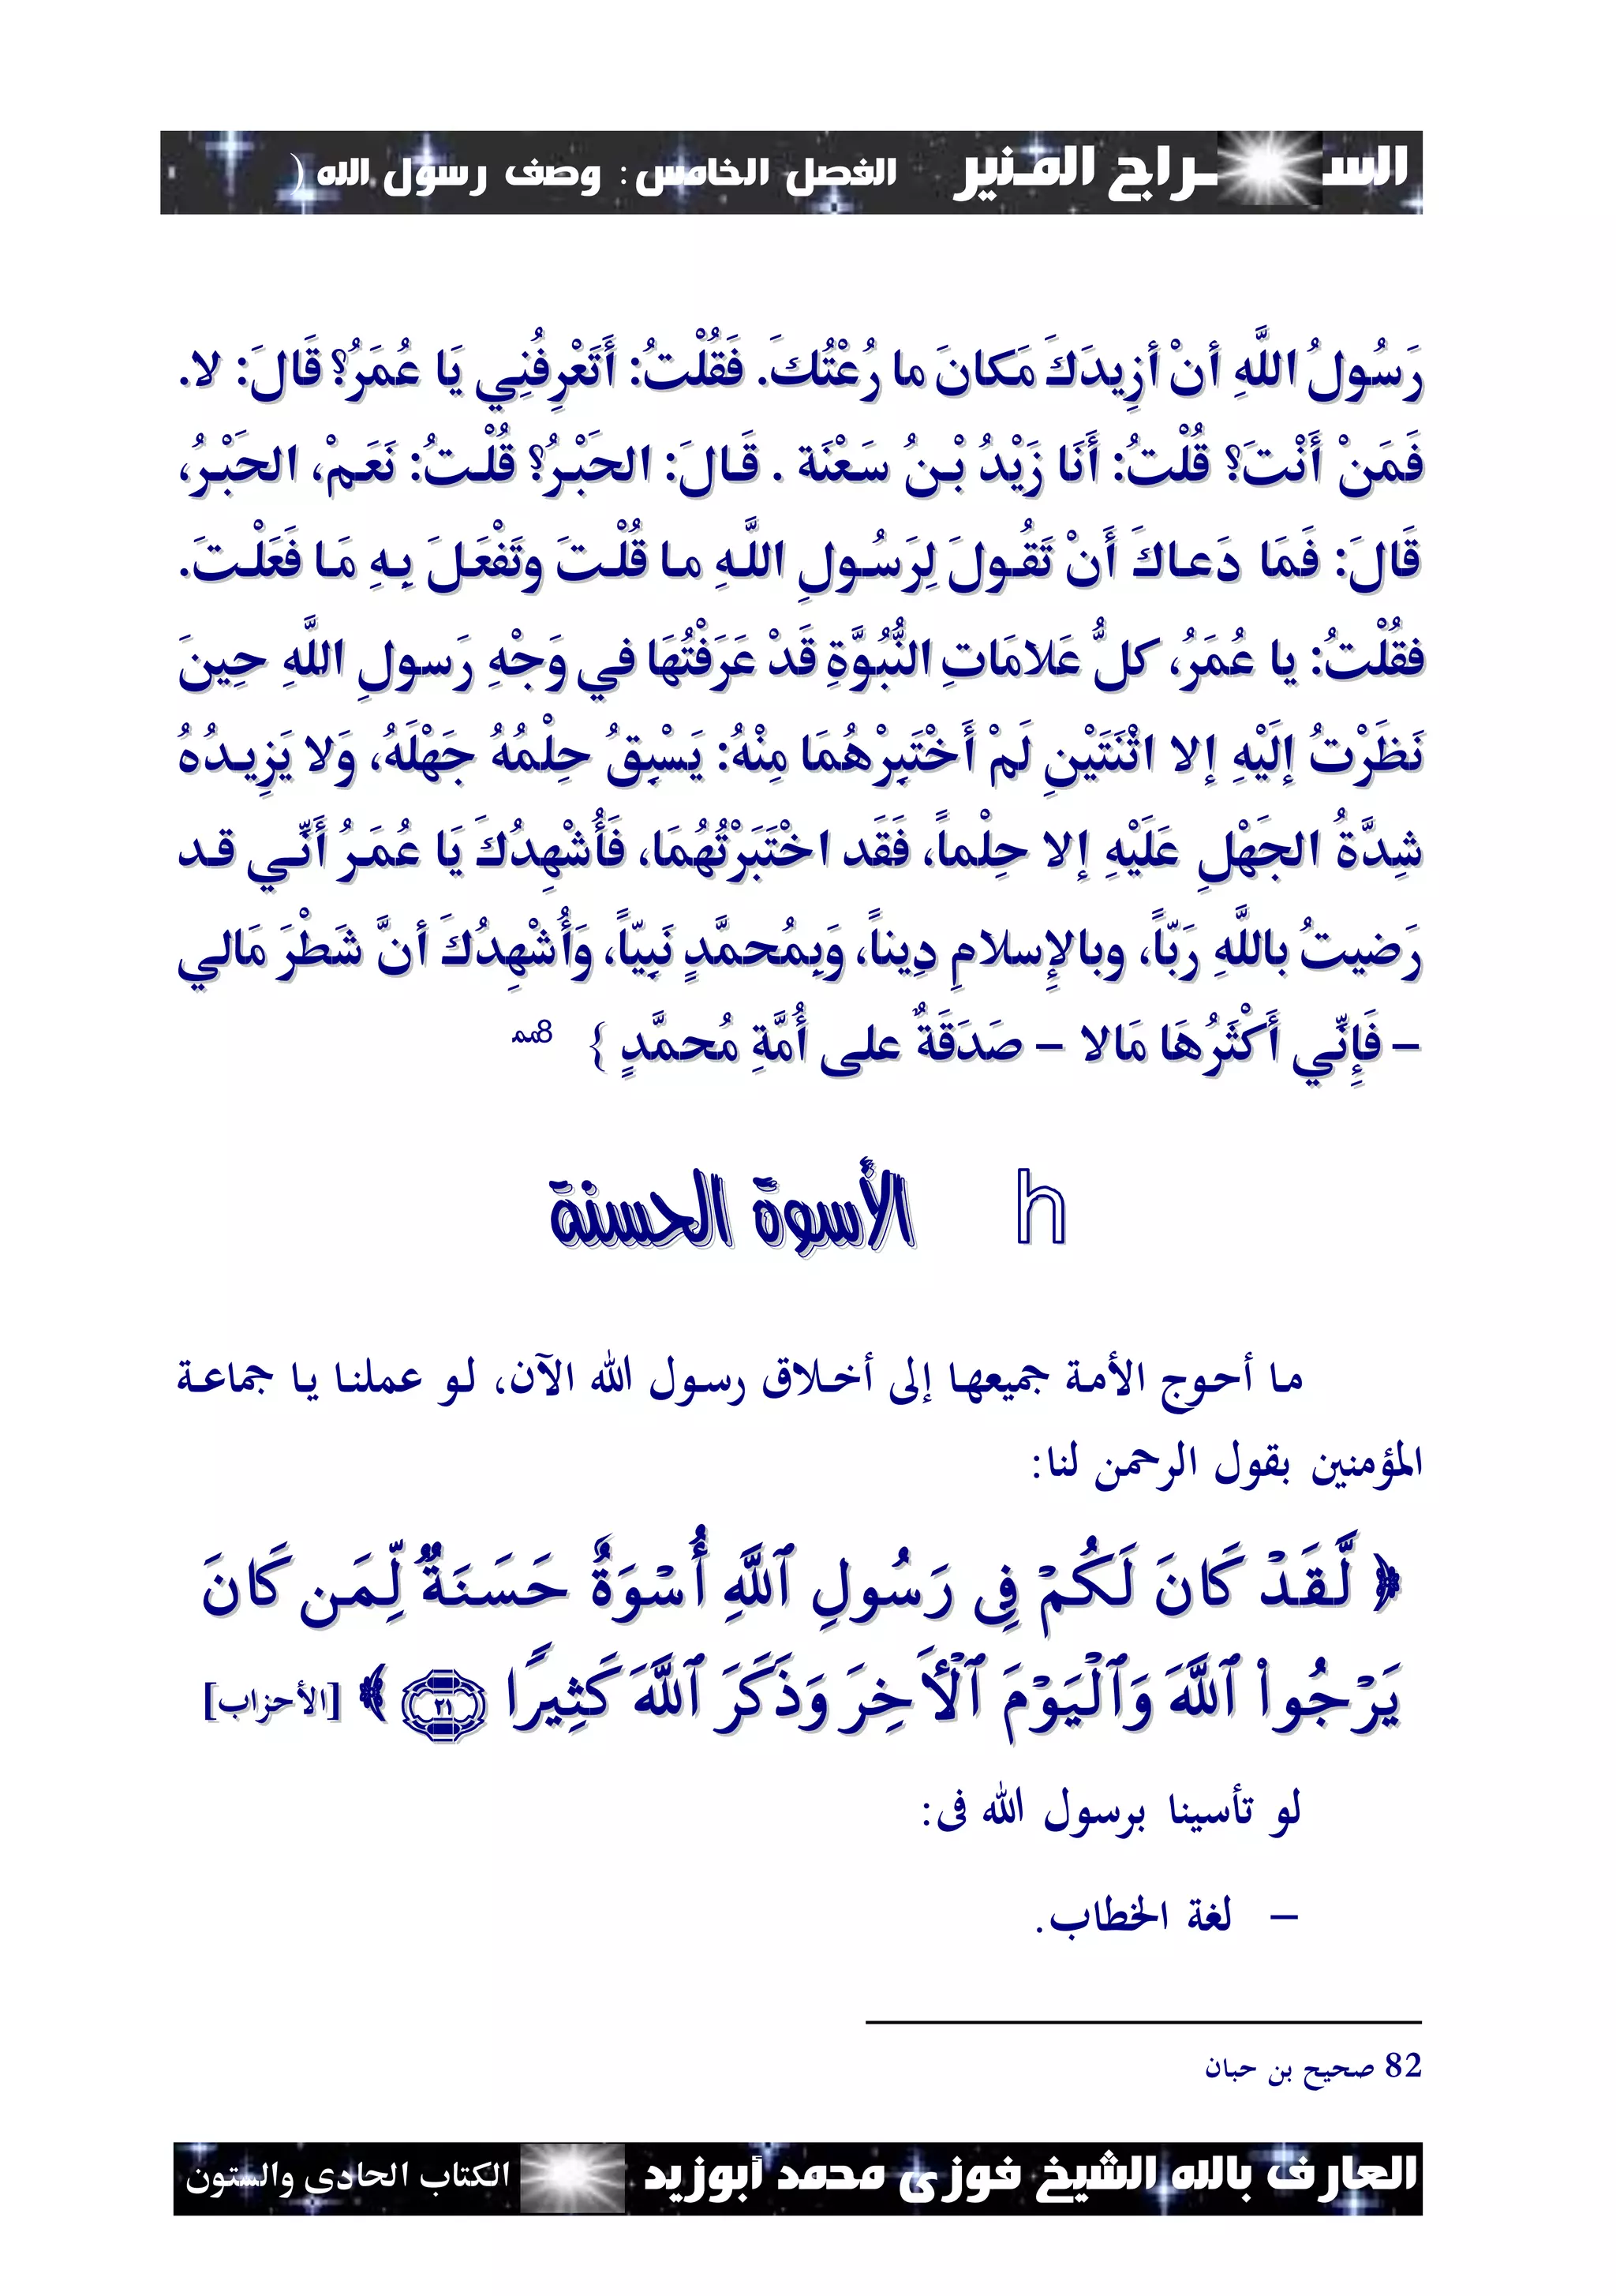 الســراج المـنير الفصل الخامس: وصف رسول الله (
رَسُولُ اللَّهِ أنْ أزِيدَكَ مَكانَ ما رُعْتُكَ. فَقُلْتُ: أَتَعْرِفُنِي يَا عُمَرُ؟ قَالَ: لا.
فَمَنْ أَنْتَ؟ قُلْتُ: أَنَا زَيْدُ بْنُ سَعْنَة . قَالَ: الحَبْرُ؟ قُلْتُ: نَعَمْ، الحَبْرُ،
قَالَ: فَمَا دَعاكَ أَنْ تَقُولَ لِرَسُولِ اللَّهِ ما قُلْتَ وتَفْعَلَ بِهِ مَا فَعَلْتَ.
فقُلْتُ: يا عُمَرُ، كلُّ عَلامَاتِ النُّبُوَّةِ قَدْ عَرَفْتُهَا في وَجْهِ رَسولِ اللَّهِ حِينَ
نَظَرْتُ إلَيْهِ إلا اثْنَتَيْنِ لَمْ أَخْتَبِرْهُمَا مِنْهُ: يَسْبِقُ حِلْمُهُ جَهْلَهُ، وَلا يَزِيدُهُ
شِدَّةُ الجَهْلِ عَلَيْهِ إلا حِلْماً، فَقَد اخْتَبَرْتُهُمَا، فَأُشْهِدُكَ يَا عُمَرُ أَنِّي قد
رَضيتُ باللَّهِ رَبّاً، وبالإِسلامِ دِيناً، وَبِمُحمَّدٍ نَبِيّاً، وَأُشْهِدُكَ أنَّ شَطْرَ مَالي
– فَإِنِّي أَكْثَرُهَا مَالا – صَدَقَةٌ على أُمَّةِ مُحمَّدٍ }
h الأسوة الحسنة
ما أحوج الأمة جميعها إلى أخلاق رسول الله الآن، لو عملنا يا جماعة
المؤمنين بقول الرحمن لنا:
﴿ لَّقَدْ كَانَ لَكُمْ فِى رَسُولِ ٱللَّهِ أُسْوَةٌ حَسَنَةٌ لِّمَن كَانَ
يَرْجُوا۟ ٱللَّهَ وَٱلْيَوْمَ ٱلْأَخِرَ وَذَكَرَ ٱللَّهَ كَثِيرًا ٢١ ﴾ [الأحزاب]
لو تأسينا برسول الله فى:
– لغة الخطاب.
82 صحيح بن حبان
العارف بالله الشيخ فوزى محمد أبوزيد الكتاب الحادى والستون